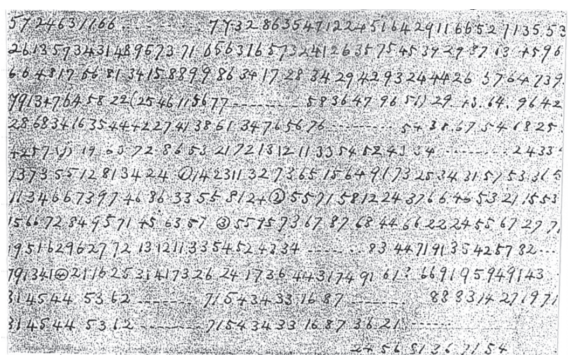 5724631166 ---------- 7732 8635471224516429116652 7135 53
2613573431489573 71 6563165732412635 75 45 37 29 87 13 4596
6643 17 56 81 3415 8899 86 34 17 28 34 29 42 93 24 4426 5764 739
7913+764 58 22(2546115677 ---------- 58 3647 96 51)29 43. 64. 9642
28683416354422741386134765676 -------- 54 35.67.54 1825
4257 (V) 19 65 72 86 53 21 72 1312 11 33 54 52 43 34 -------- 2433
1373 55128134 24 ①142311327365156491732534315753 36 5
113466739746863355 812+②55715812243766466532 1553
156672849571 45 6357 ③5575736787684466222455672771
195162962772 1312113354524334 -------- 83 44719135425782 ---
791341④2116253141732624 1736 443174 91 613 669195949143
314544 5362 -------- 71543433 1687 -------- 888314271971
314544 5362 -------- 71543433 1687 36 21 -----
---- 2456 8136 7154